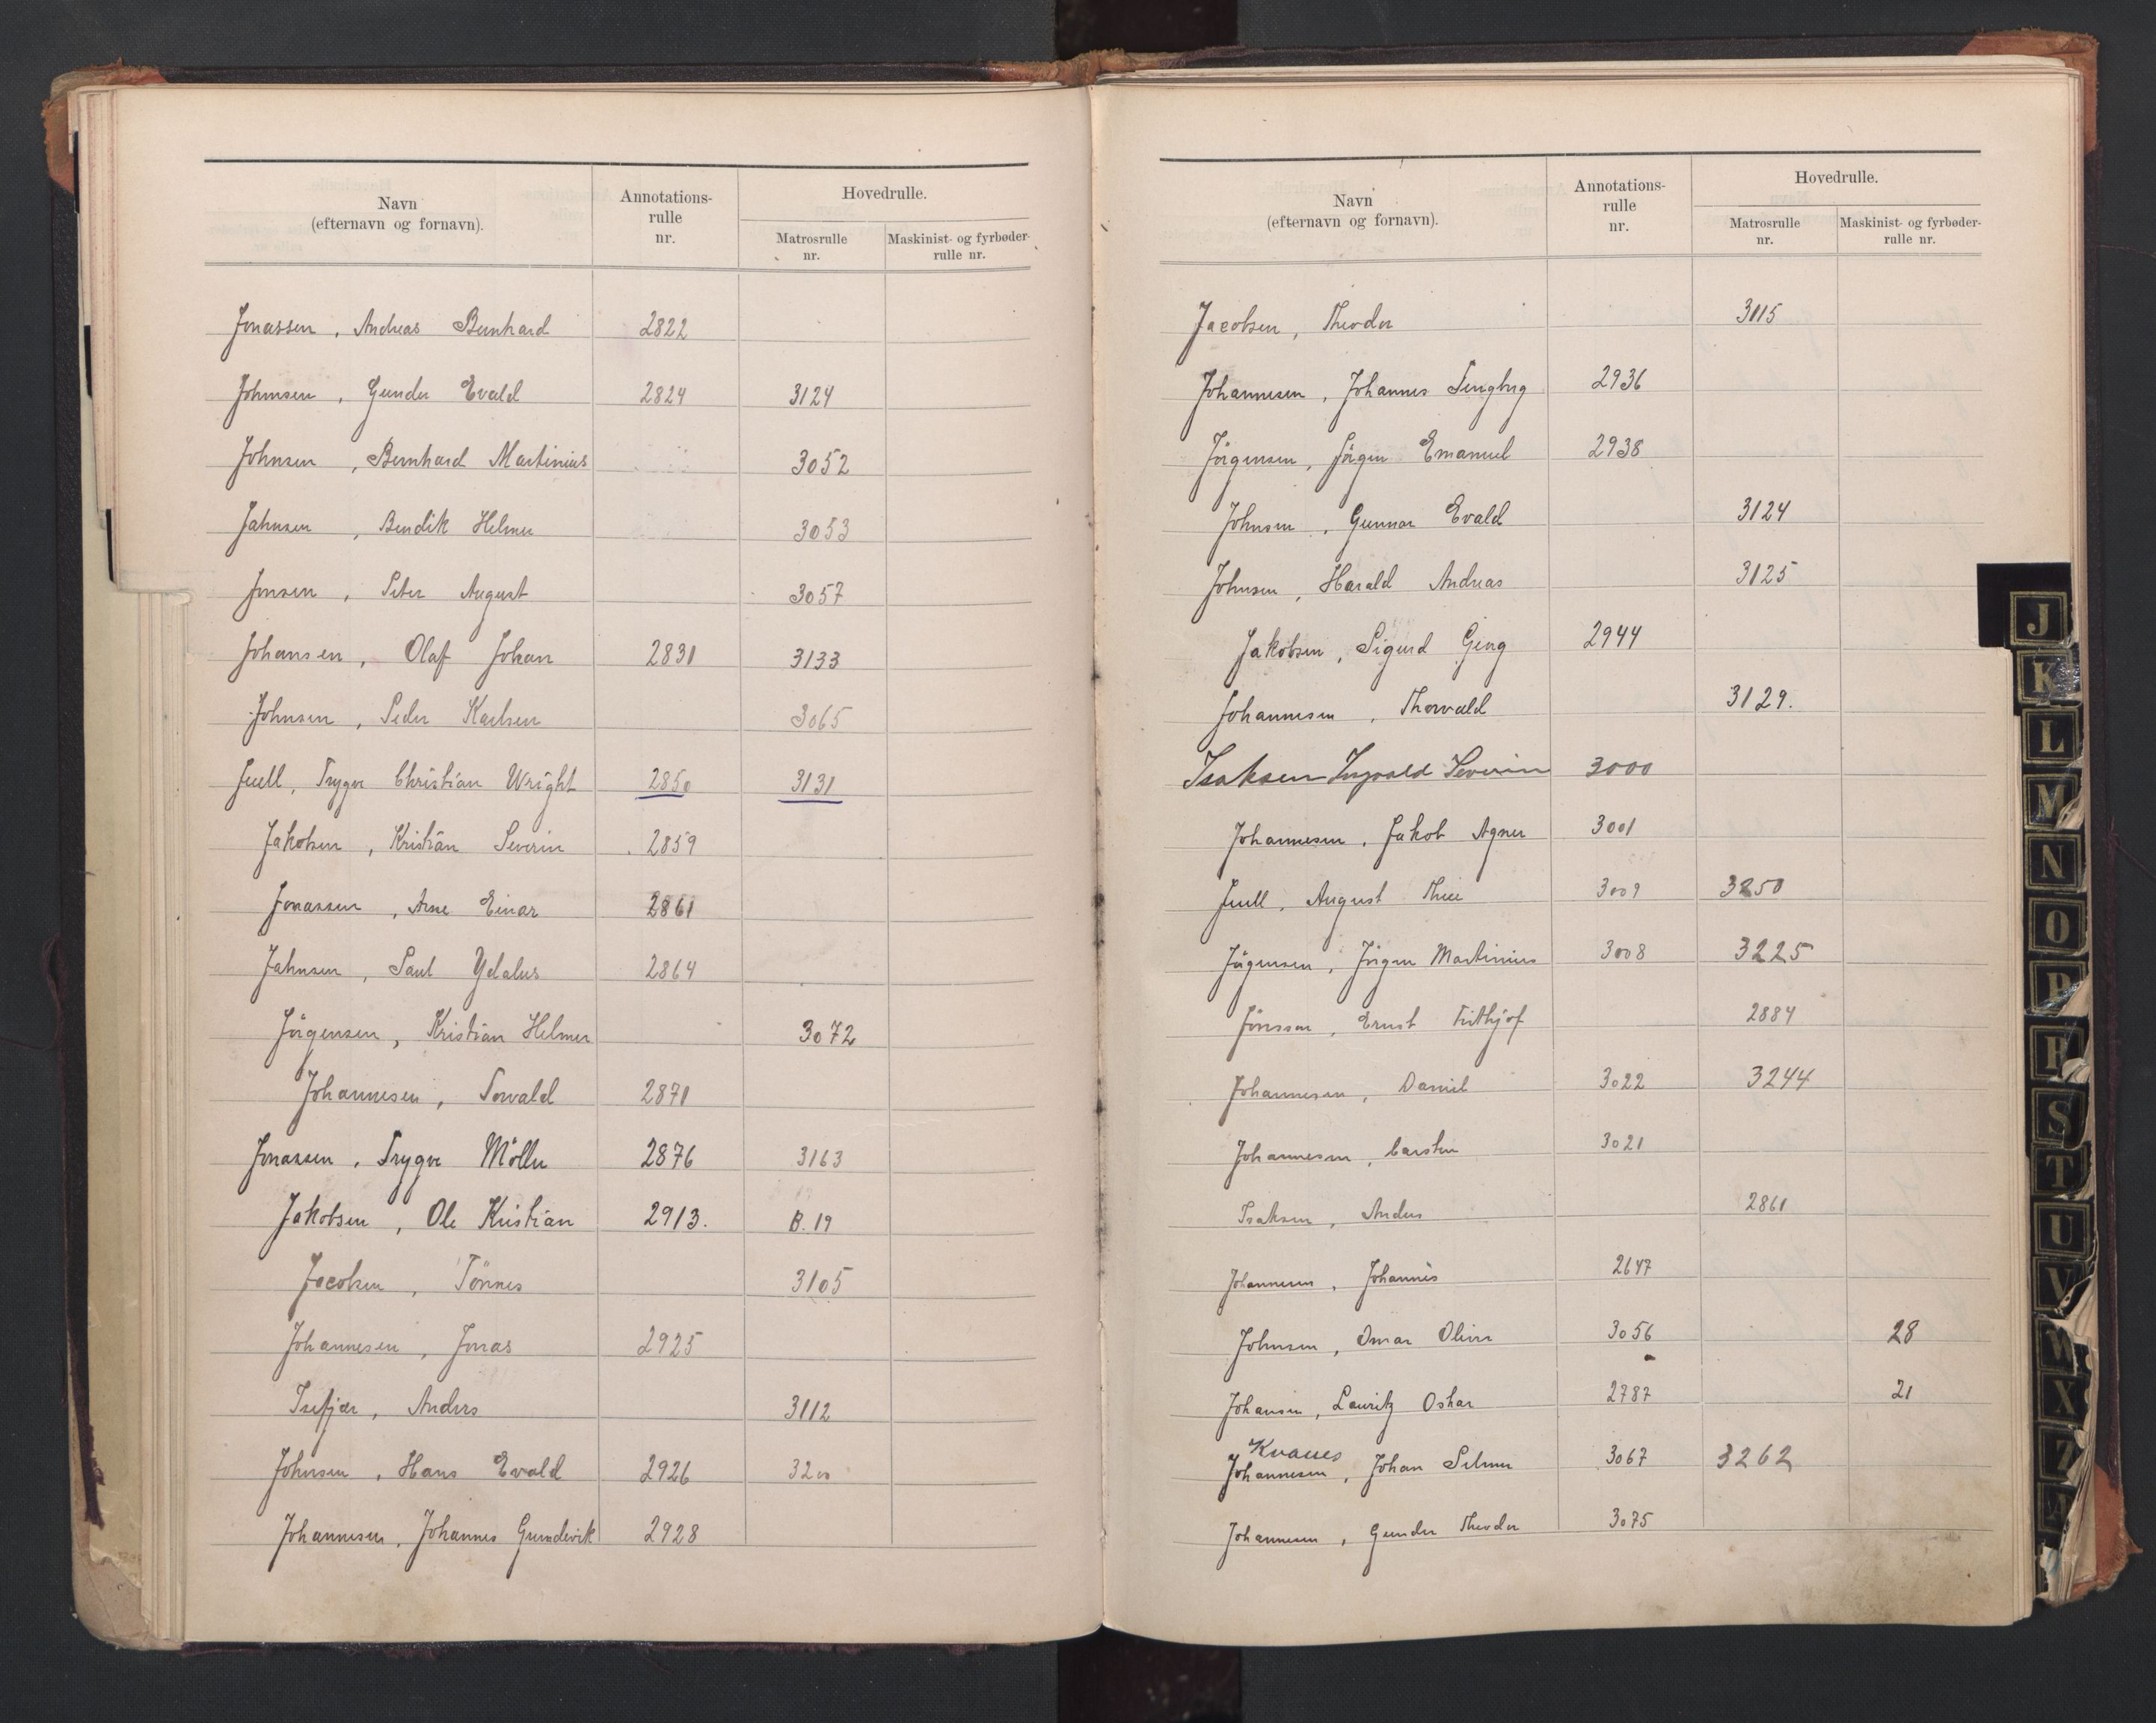 Navn
(efternavn og fornavn).
Annotations-
rulle
nr.
Hovedrulle.
Matrosrulle
nr.
Maskinist- og fyrbøder-
rulle nr.
Jonassen, Andreas Bernhard 2822
Johnsen, Gunder Evald 2824 3124
Johnsen, Bernhard Martinius 3052
Jahnsen, Bendik Helmer 3053
Jonsen, Peter August 3057
Johansen, Olaf Johan 2831 3133
Johnsen, Peder Karlsen 3065
Juell, Trygve Christian Wright 2850 3131
Jakobsen, Kristian Severin 2859
Jonassen, Arne Einar 2861
Jahnsen, Paul Ydalus 2864
Jörgensen, Kristian Helmer 3072
Johannesen, Torvald 2871
Jonassen, Trygve Möller 2876 3163
Jakobsen, Ole Kristian 2913. B. 19
Jacobsen, Tönnes 3105
Johannesen, Jonas 2925
Isefjær, Anders 3112
Johnsen, Hans Evald 2926 3200
Johannesen, Johannes Grundevik 2928
Navn
(efternavn og fornavn).
Annotations-
rulle
nr.
Hovedrulle.
Matrosrulle
nr.
Maskinist- og fyrbøder-
rulle nr.
Jacobsen, Theodor 3115
Johannesen, Johannes 2936
Jörgensen, Jörgen Emanuel 2938
Johnsen, Gunnar Evald 3124
Johnsen, Harald Andreas 3125
Jakobsen, Sigurd Georg 2944
Johannesen, Thorvald 3129.
Isaksen Ingvald Severin 3000
Johannesen, Jakob Agner 3001
Juell, August Thue 3009 3250
Jörgensen, Jörgen Martinius 3008 3225
Jönsson, Ernst Frithjof 2884
Johannesen, Daniel 3022 3244
Johannesen, Carsten 3021
Isaksen, Anders 2861
Johannesen, Johannes 2647
Johnsen, Omar Oliver 3056 28
Johansen, Lauritz Oskar 2787 21
Kvanes
Johannesen, Johan Selmer 3067 3262
Johannesen, Gunder Theodor 3075
J
K
L
M
N
O
P
R
S
T
U
V
W
X
Z